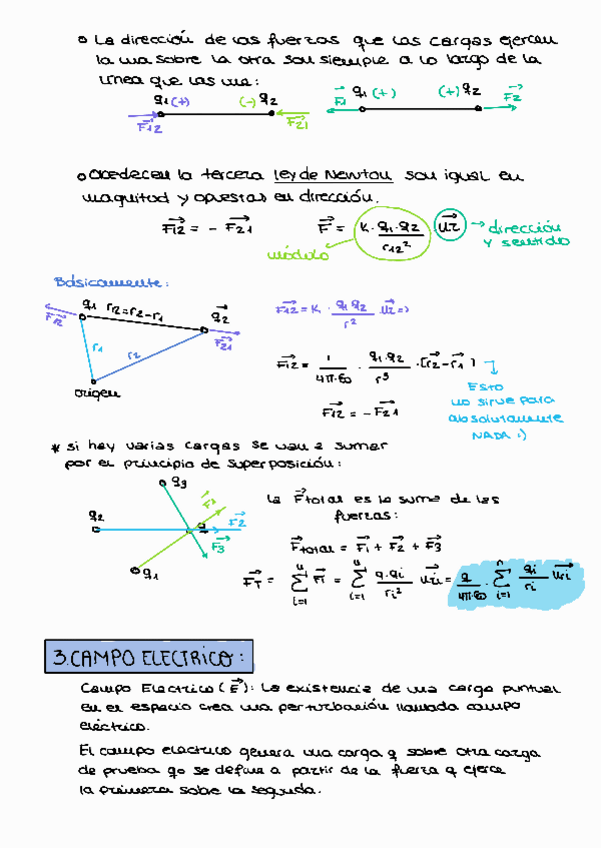 o La dirección de las fuerzas que las cargas ejercen
la una sobre la otra son siempre a lo largo de la
línea que las une:
q1 (+) (-) q2 F1 q1 (+) (+) q2 F2
F12 F21
o Obedecen la tercera ley de Newton son igual en
magnitud y opuestas en dirección.
F12 = - F21 F = K · q1·q2 / r12² · ur → dirección y sentido
módulo
Básicamente:
q1 r12=r2-r1 q2
F12 F21
r1 r2
origen
F12 = K · q1 q2 / r² · ur =>
F12 = 1 / 4π·ε0 · q1·q2 / r³ · [r2 - r1]
F12 = - F21
Esto
no sirve para
absolutamente
NADA :)
* si hay varias cargas se van a sumar
por el principio de superposición:
q3
q2 F2
F3
q1
La Ftotal es la suma de las
fuerzas:
Ftotal = F1 + F2 + F3
FT = Σ i=1 Fi = Σ i=1 q·qi / ri² · uri = q / 4π·ε0 · Σ i=1 qi / ri · uri
3. CAMPO ELECTRICO:
Campo Electrico (E): La existencia de una carga puntual
en el espacio crea una perturbación llamada campo
eléctrico.
El campo electrico genera una carga q sobre otra carga
de prueba q0 se define a partir de la fuerza q ejerce
la primera sobre la segunda.